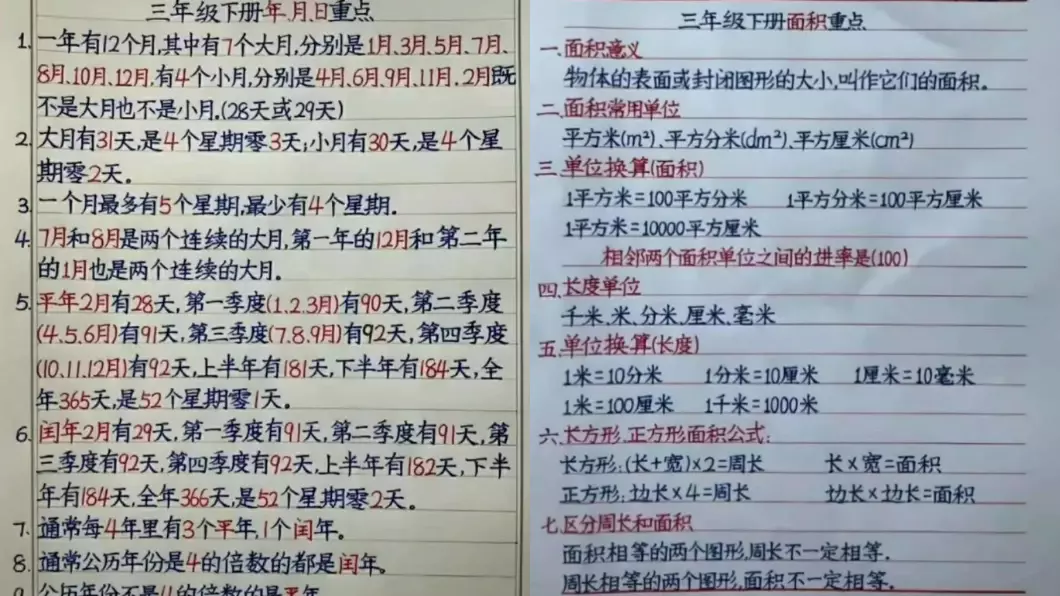 三年级下册年.月.日重点
1. 一年有12个月,其中有7个大月,分别是1月、3月、5月、7月、
8月、10月、12月,有4个小月,分别是4月、6月、9月、11月、2月既
不是大月也不是小月.(28天或29天)
2. 大月有31天,是4个星期零3天;小月有30天,是4个星
期零2天。
3. 一个月最多有5个星期,最少有4个星期.
4. 7月和8月是两个连续的大月,第一年的12月和第二年
的1月也是两个连续的大月。
5. 平年2月有28天,第一季度(1.2.3月)有90天,第二季度
(4.5.6月)有91天,第三季度(7.8.9月)有92天,第四季度
(10.11.12月)有92天,上半年有181天,下半年有184天,全
年365天,是52个星期零1天。
6. 闰年2月有29天,第一季度有91天,第二季度有91天,第
三季度有92天,第四季度有92天,上半年有182天,下半
年有184天,全年366天,是52个星期零2天。
7. 通常每4年里有3个平年,1个闰年。
8. 通常公历年份是4的倍数的都是闰年。
公历年份不是4的倍数的是平年
三年级下册面积重点
一.面积意义
物体的表面或封闭图形的大小,叫作它们的面积。
二.面积常用单位
平方米(m²)、平方分米(dm²)、平方厘米(cm²)
三.单位换算(面积)
1平方米=100平方分米 1平方分米=100平方厘米
1平方米=10000平方厘米
相邻两个面积单位之间的进率是(100)
四.长度单位
千米、米、分米、厘米、毫米
五.单位换算(长度)
1米=10分米 1分米=10厘米 1厘米=10毫米
1米=100厘米 1千米=1000米
六.长方形.正方形面积公式:
长方形:(长+宽)×2=周长 长×宽=面积
正方形:边长×4=周长 边长×边长=面积
七.区分周长和面积
面积相等的两个图形,周长不一定相等.
周长相等的两个图形,面积不一定相等.